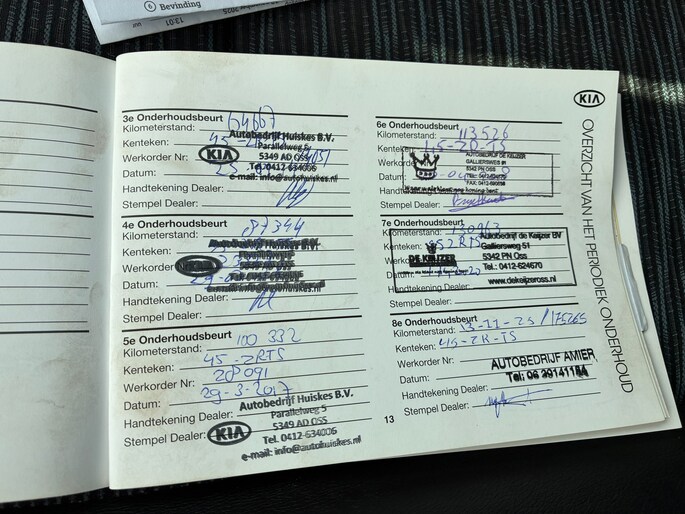 6 Bevinding
13:01
3e Onderhoudsbeurt
Kilometerstand: 64667
Kenteken: 45-
Werkorder Nr:
Datum:
Handtekening Dealer:
Stempel Dealer:
KIA
Autobedrijf Huiskes B.V.
Parallelweg 5
5349 AD OSS
Tel. 0412-634006
e-mail: info@autohuiskes.nl
4e Onderhoudsbeurt
Kilometerstand: 87344
Kenteken:
Werkorder
Datum:
Handtekening Dealer:
Stempel Dealer:
5e Onderhoudsbeurt
Kilometerstand: 100 332
Kenteken: 45-ZRTS
Werkorder Nr: 208091
Datum: 29-3-2017
Handtekening Dealer:
Stempel Dealer:
KIA
Autobedrijf Huiskes B.V.
Parallelweg 5
5349 AD OSS
Tel. 0412-634006
e-mail: info@autohuiskes.nl
6e Onderhoudsbeurt
Kilometerstand: 113526
Kenteken: 45-ZR-TS
Werkorder
Datum:
Handtekening Dealer:
Stempel Dealer:
AUTOBEDRIJF DE KEIJZER
GALLIERSWEG 51
5342 PN OSS
7e Onderhoudsbeurt
Kilometerstand: 130963
Kenteken: 45ZRTS
Werko
Datum:
Handtekening Dealer:
Stempel Dealer:
DE KEIJZER
Autobedrijf de Keijzer BV
Galliersweg 51
5342 PN Oss
Tel.: 0412-624670
www.dekeijzeross.nl
8e Onderhoudsbeurt
Kilometerstand: 13-11-25 / 175265
Kenteken: 45-ZR-TS
Werkorder Nr:
Datum:
Handtekening Dealer:
Stempel Dealer:
AUTOBEDRIJF AMIER
Tel: 06 29141184
13
KIA
OVERZICHT VAN HET PERIODIEK ONDERHOUD